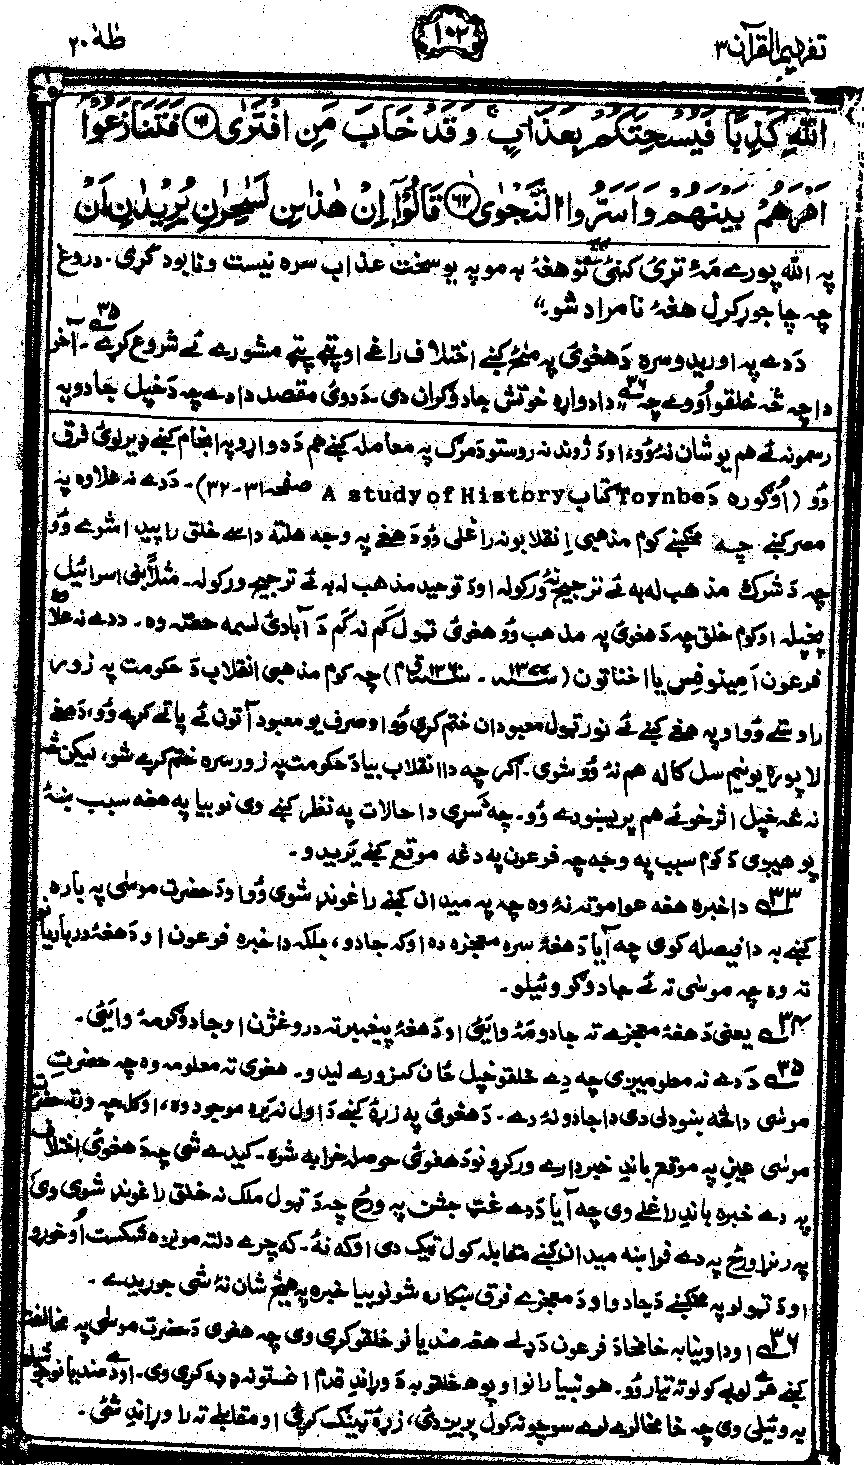 تفهیم القرآن ۳
۱۰۲
طٰهٰ ۲۰
اللّٰهِ كَذِبًا فَيُسْحِتَكُمْ بِعَذَابٍ ۚ وَقَدْ خَابَ مَنِ افْتَرٰى ﴿۶۱﴾ فَتَنَازَعُوْٓا
اَمْرَهُمْ بَيْنَهُمْ وَاَسَرُّوا النَّجْوٰى ﴿۶۲﴾ قَالُوْٓا اِنْ هٰذٰىنِ لَسٰحِرٰنِ يُرِيْدٰنِ اَنْ
په الله پورے مۀ تړئ کنې نو هغۀ به مو په یو سخت عذاب سره نیست و نابود کړی. دروغ
چه چا جوړ کړل هغۀ نامراد شو.“
د دے په اوریدو سره د هغوئ په منځ کښے اختلاف راغے او پټے پټے مشورے ئے شروع کړے ۳۵. آخر
دا چه څه خلقو اووے چه ۳۶ „دا دواړه خوتش جادوګران دی. د دوئ مقصد دا دے چه د خپل جادو په
رسمونه ئے هم یو شان نۀ وو، او د ژوند نه روستو د مرګ په معامله کښے هم د دواړو په انجام کښے ډیر لوئ فرق
وو (اوګوره د Toynbe کتاب A study of History صفحه ۳۱-۳۲). د دے نه علاوه په
مصر کښے چه مخکښے کوم مذهبی انقلابونه راغلی وو د هغے په وجه هلته داسے خلق را پیدا شوے وو
چه د شرک مذهب له به ئے ترجیح نۀ ورکوله او د توحید مذهب له به ئے ترجیح ورکوله. مثلاً بنی اسرائیل
پخپله او کوم خلق چه د هغوئ په مذهب وو هغوئ ټول کم نه کم د آبادئ لسمه حصه وه. د دے نه علاوه
فرعون امینوفس یا اخناتون (۱۳۷۷ - ۱۳۶۰ ق م) چه کوم مذهبی انقلاب د حکومت په زور
راوستے وو او په هغے کښے ئے نور ټول معبودان ختم کړی وو او صرف یو معبود آتون ئے پاتے کړے وو، د هغے
لا پوره یو نیم سل کاله هم نۀ وو شوی. اګر چه دا انقلاب بیا د حکومت په زور سره ختم کړے شو، لیکن څه
نه څه خپل اثر خو ئے هم پریښودے وو. چه د سړی دا حالات په نظر کښے وی نو بیا په هغه سبب ښۀ
پوهیږی د کوم سبب په وجه چه فرعون په دغه موقع کښے یریدو.
۳۳ دا خبره هغه عوامو ته نۀ وه چه په میدان کښے راغونډ شوی وو او د حضرت موسٰی په باره
کښے به دا فیصله کوی چه آیا د هغۀ سره معجزه ده او که جادو، بلکه دا خبره فرعون او د هغۀ درباریانو
ته وه چه موسٰی ته ئے جادوګر وئیلو.
۳۴ یعنی د هغۀ معجزے ته جادو مۀ وایئ او د هغۀ پیغمبر ته دروغژن او جادوګر مۀ وایئ.
۳۵ د دے نه معلومیږی چه دے خلقو خپل ځان کمزورے لیدو. هغوئ ته معلومه وه چه حضرت
موسٰی دا څه ښودلی دی دا جادو نۀ دے. د هغوئ په زړۀ کښے د اول نه یره موجود وه، او کله چه وقت حضرت
موسٰی عین په موقع باندِ خبردارے ورکړو نو د هغوئ حوصله خرابه شوه. کیدے شی چه د هغوئ اختلاف
په دے خبره باندِ راغلے وی چه آیا د دے غټ جشن په ورځ چه د ټول ملک نه خلق راغونډ شوی وی
په رنړا ورځ په دے فراښه میدان کښے مقابله کول ټیک دی او که نۀ. که چرے دلته مونږه شکست اوخوړو
او د ټولو په مخکښے د جادو او د معجزے فرق ښکاره شو نو بیا خبره په هیڅ شان نۀ شی جوړیدے.
۳۶ او دا وینا به خامخا د فرعون د ډلے هغه ضدیانو خلقو کړی وی چه هغوی د حضرت موسٰی په مخالفت
کښے هرۀ لوبے کولو ته تیار وو. هوښیارانو او پوهه خلقو به د وړاندِ قدم اخستو نه ډډه کړی وی. او د ضدیانو
به وئیلی وی چه خامخا لرے لرے سوچونه کول پریږدئ، زړۀ ټینګ کړئ او مقابلے ته را وړاندِ شئ.